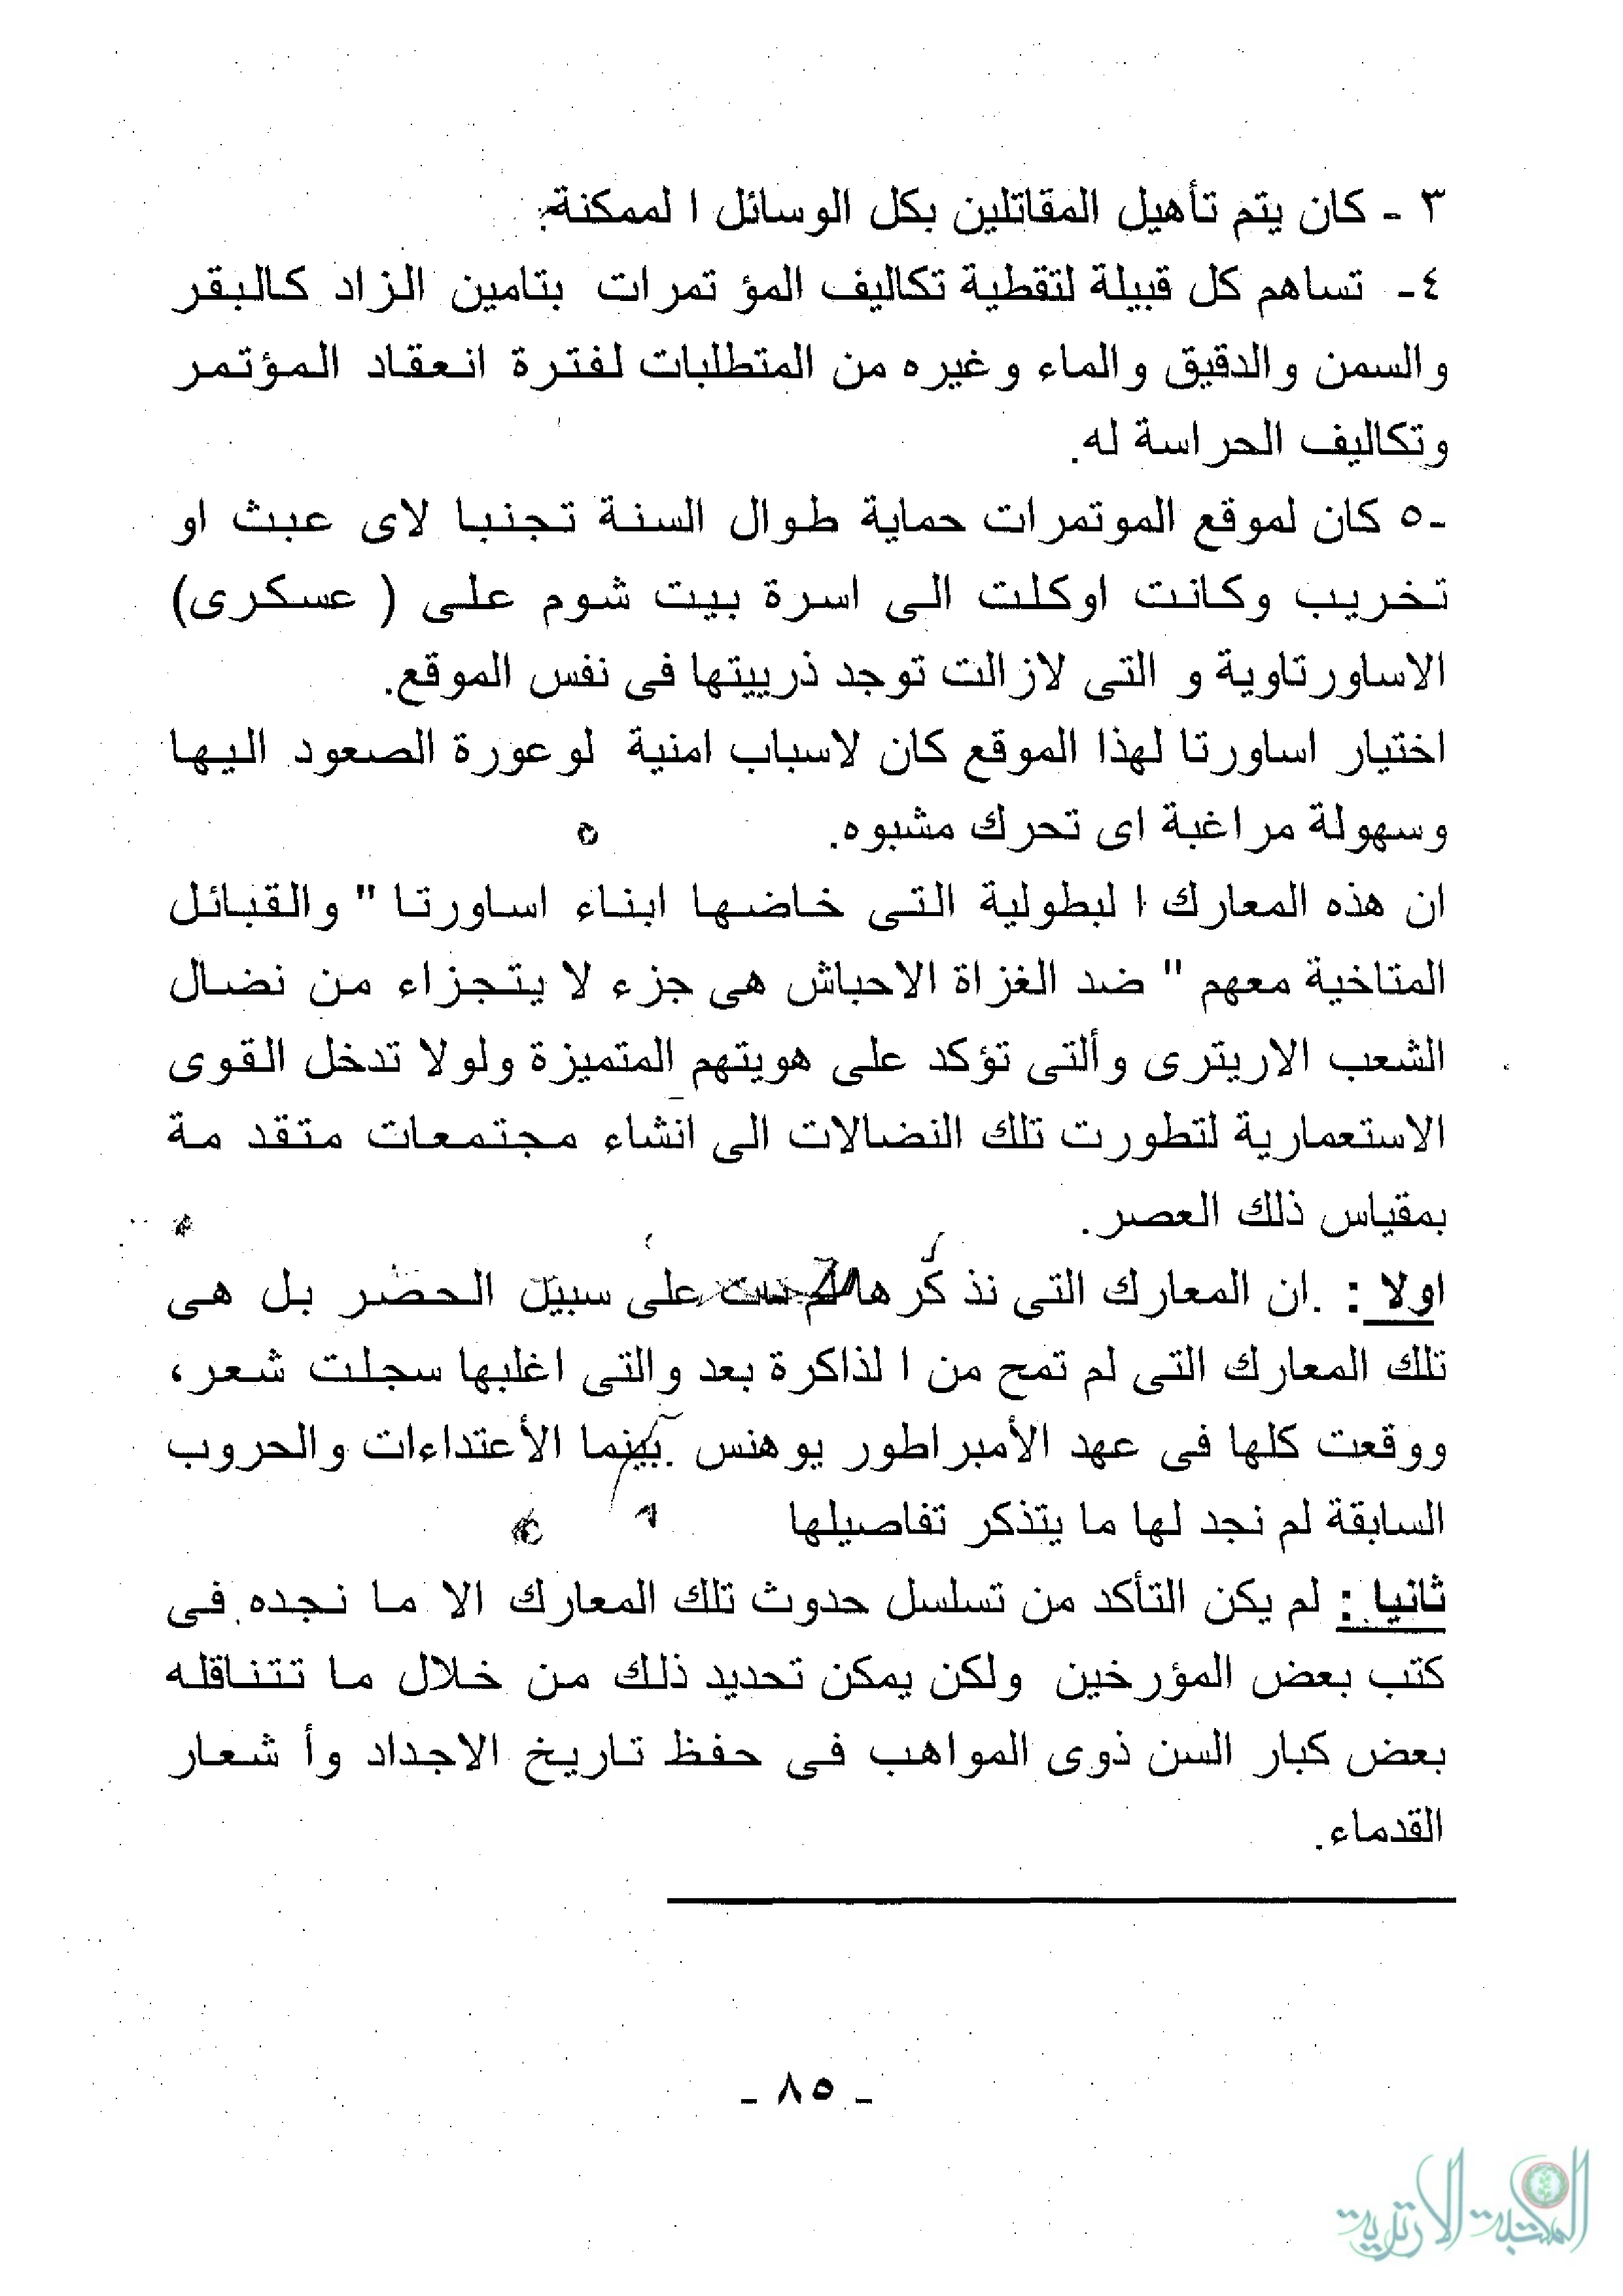 ٣ - كان يتم تأهيل المقاتلين بكل الوسائل ا لممكنة.
٤- تساهم كل قبيلة لتقطية تكاليف المؤ تمرات بتامين الزاد كالبقر
والسمن والدقيق والماء وغيره من المتطلبات لفترة انعقاد المؤتمر
وتكاليف الحراسة له.
-٥ كان لموقع الموتمرات حماية طوال السنة تجنبا لاى عبث او
تخريب وكانت اوكلت الى اسرة بيت شوم على ( عسكرى)
الاساورتاوية و التى لازالت توجد ذرييتها فى نفس الموقع.
اختيار اساورتا لهذا الموقع كان لاسباب امنية لوعورة الصعود اليها
وسهولة مراغبة اى تحرك مشبوه.
ان هذه المعارك ا لبطولية التى خاضها ابناء اساورتا " والقبائل
المتاخية معهم " ضد الغزاة الاحباش هى جزء لا يتجزاء من نضال
الشعب الاريترى وألتى تؤكد على هويتهم المتميزة ولولا تدخل القوى
الاستعمارية لتطورت تلك النضالات الى انشاء مجتمعات متقد مة
بمقياس ذلك العصر.
اولا : .ان المعارك التى نذ كرها على سبيل الحضر بل هى
تلك المعارك التى لم تمح من ا لذاكرة بعد والتى اغلبها سجلت شعر،
ووقعت كلها فى عهد الأمبراطور يوهنس .بينما الأعتداءات والحروب
السابقة لم نجد لها ما يتذكر تفاصيلها
ثانيا : لم يكن التأكد من تسلسل حدوث تلك المعارك الا ما نجده فى
كتب بعض المؤرخين ولكن يمكن تحديد ذلك من خلال ما تتناقله
بعض كبار السن ذوى المواهب فى حفظ تاريخ الاجداد وأ شعار
القدماء.
- ٨٥ -
المكتبة الارترية